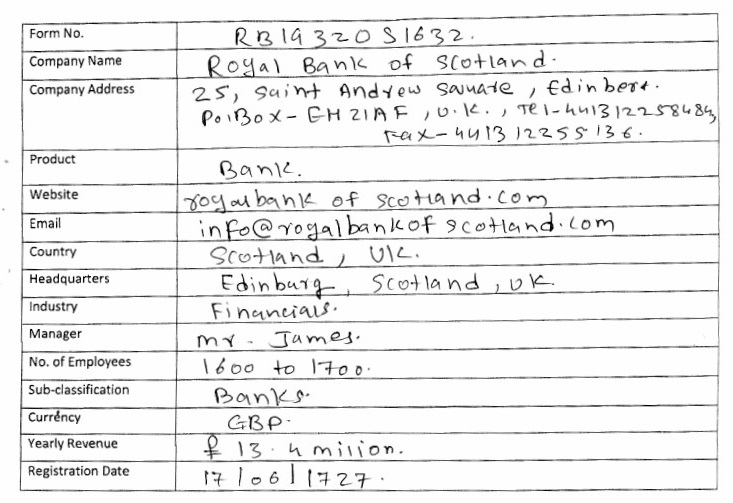 Form No. RB19320S1632.
Company Name Royal Bank of Scotland.
Company Address 25, Saint Andrew Square, Edinbert.
P.O.Box-EH21AF, U.K., Tel-441312258484,
Fax-441312255136.
Product Bank.
Website royalbank of scotland.com
Email info@royalbankofscotland.com
Country Scotland, UK.
Headquarters Edinburg, Scotland, UK.
Industry Financials.
Manager Mr. James.
No. of Employees 1600 to 1700.
Sub-classification Banks.
Currency GBP.
Yearly Revenue £ 13.4 milion.
Registration Date 17/06/1727.